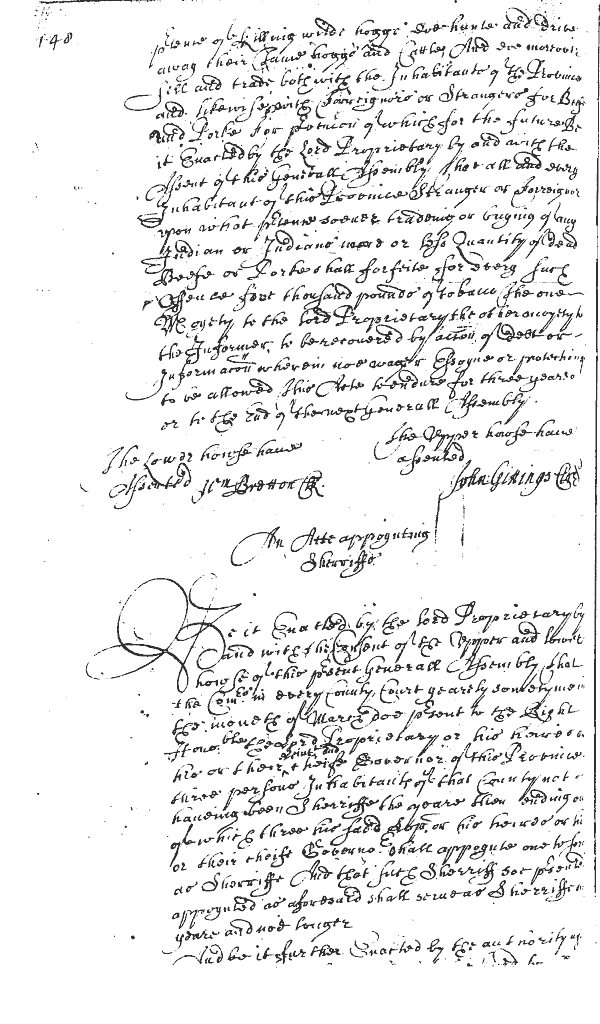 148
ptence of killing wilde hoggs doe hunte and drive
away their tame hoggs and Cattle And doe moreover
sell and trade both with the Inhabitants of the Province
and likewise with Forreigners or Strangers for Beefe
and Porke for prvencon of which for the future Be
it Enacted by the Lord Proprietary by and with the
Assent of this Generall Assembly That all and every
Inhabitant of this Province Stranger or Forreigner
upon what ptence soever tradeing or buying of any
Indian or Indians more or lesse Quantity of dead
Beefe or Porke shall forfeite for every such
offence five thousand pounds of tobacco The one
Moyety to the Lord Proprietary the other moyety to
the Informer, to be recovered by accon of debt or
Informacon wherein noe wager Essoyne or protection
to be allowed This Acte to endure for three yeares
or to the End of the next Generall Assembly.
The Lower howse have
Assented Wm Bretton Clk.
The Upper howse have
assented
John Gittings Clk
An Acte appoynting
Sherriffs
Be it Enacted by the Lord Proprietary by
and with the Consent of the Upper and lower
howse of this present Generall Assembly That
the Comrs in every County Court yearely sometyme in
the moneth of March doe psent to the Right
Honoble the Lord Proprietary or his heires or
his or their cheife Governor of this Province
three persons Inhabitants of that County not
haveing been Sherriffe the yeare then ending
of which three his said Lopp or his heires or his
or their cheife Governor shall appoynte one to
as Sherriffe And that such Sherriff soe
appoynted as aforesaid shall serve as Sherriffe
yeare and noe longer
And be it further Enacted by the authority